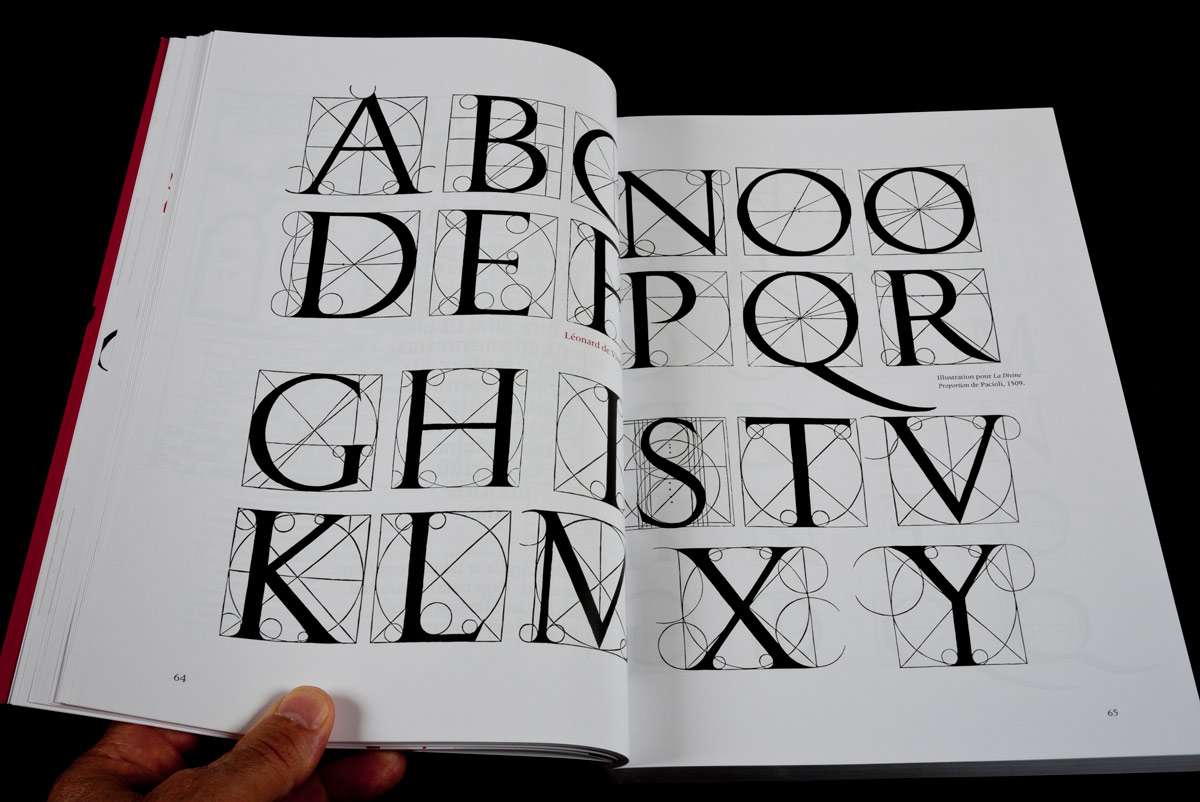 A B C
D E F
Léonard de
G H I
K L M
64
N O O
P Q R
Illustration pour La Divine
Proportion de Pacioli, 1509.
S T V
X Y
65